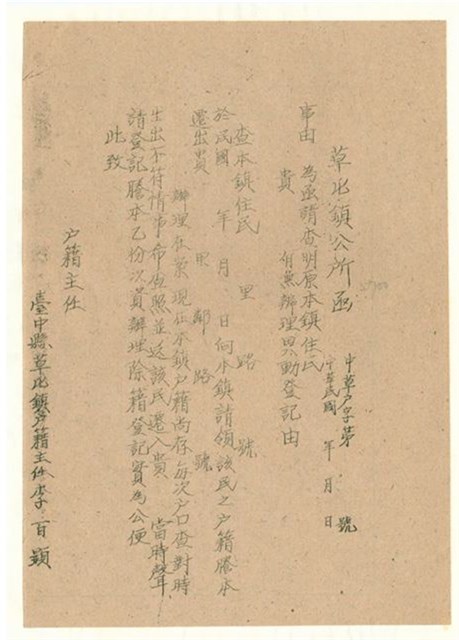 草屯鎮公所函
中草户字第　　號
中華民國　年　月　日
事由　為函請查明原本鎮住民
貴　有無辦理異動登記由
查本鎮住民　里　路　號
於民國　年　月　日向本鎮請領該民之户籍謄本
遷出貴　里　鄰　路　號
辦理在案現在本鎮户籍尚存每次户口查對時
生出不符情事希查照並送該民遷入貴　當時聲
請登記謄本乙份以資辦理除籍登記實為公便
此致
户籍主任
臺中縣草屯鎮户籍主任李百顕